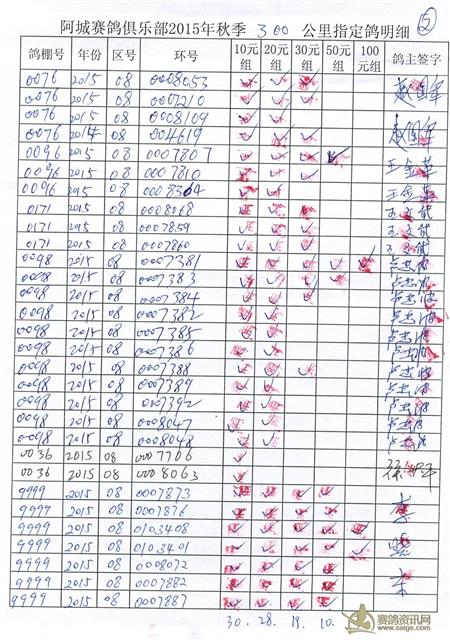 阿城赛鸽俱乐部2015年秋季 300 公里指定鸽明细 ⑮
鸽棚号 年份 区号 环号 10元组 20元组 30元组 50元组 100元组 鸽主签字
0076 2015 08 0008053 ✓ ✓ ✓
0076 2015 08 0007210 ✓ ✓ ✓
0076 2015 08 0008109 ✓ ✓
0076 2014 08 004619 ✓ ✓ ✓
0096 2015 08 0007807 ✓ ✓ ✓ ✓ 王金革
0096 2015 08 0007810 ✓ ✓ ✓ 王金革
0096 2015 08 0008364 ✓ ✓ 王金革
0171 2015 08 0008068 ✓ ✓ ✓
0171 2015 08 0007859 ✓ ✓ ✓
0171 2015 08 0007860 ✓ ✓ ✓
0098 2015 08 0007381 ✓ ✓ ✓ ✓ ✓
0098 2015 08 0007383 ✓ ✓ ✓ ✓
0098 2015 08 0007384 ✓ ✓ ✓
0098 2015 08 0007382 ✓ ✓
0098 2015 08 0007385 ✓ ✓
0098 2015 08 0007386 ✓ ✓
0098 2015 08 0007388 ✓ ✓ ✓
0098 2015 08 0007389 ✓ ✓
0098 2015 08 0007392 ✓ ✓
0098 2015 08 0008047 ✓ ✓
0098 2015 08 0008048 ✓ ✓
0036 2015 08 0007706 ✓
0036 2015 08 0008063 ✓
9999 2015 08 0007873 ✓ ✓ ✓ ✓
9999 2015 08 0007876 ✓ ✓ ✓ ✓
9999 2015 08 0103408 ✓ ✓ ✓ ✓ ✓
9999 2015 08 0103401 ✓ ✓ ✓ ✓ ✓
9999 2015 08 0008072 ✓ ✓ ✓ ✓
9999 2015 08 0007882 ✓ ✓ ✓ ✓
9999 2015 08 0007887 ✓ ✓ ✓ ✓
30. 28. 19. 10.
赛鸽资讯网
www.saige.com